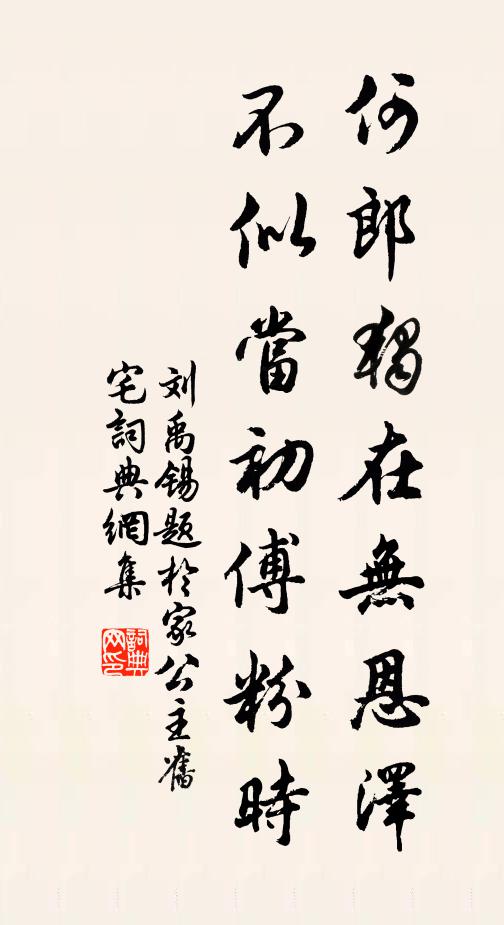 何郎獨在無恩澤
不似當初傅粉時
刘禹錫题於家公主舊
宅詞典網集
詞典
网印